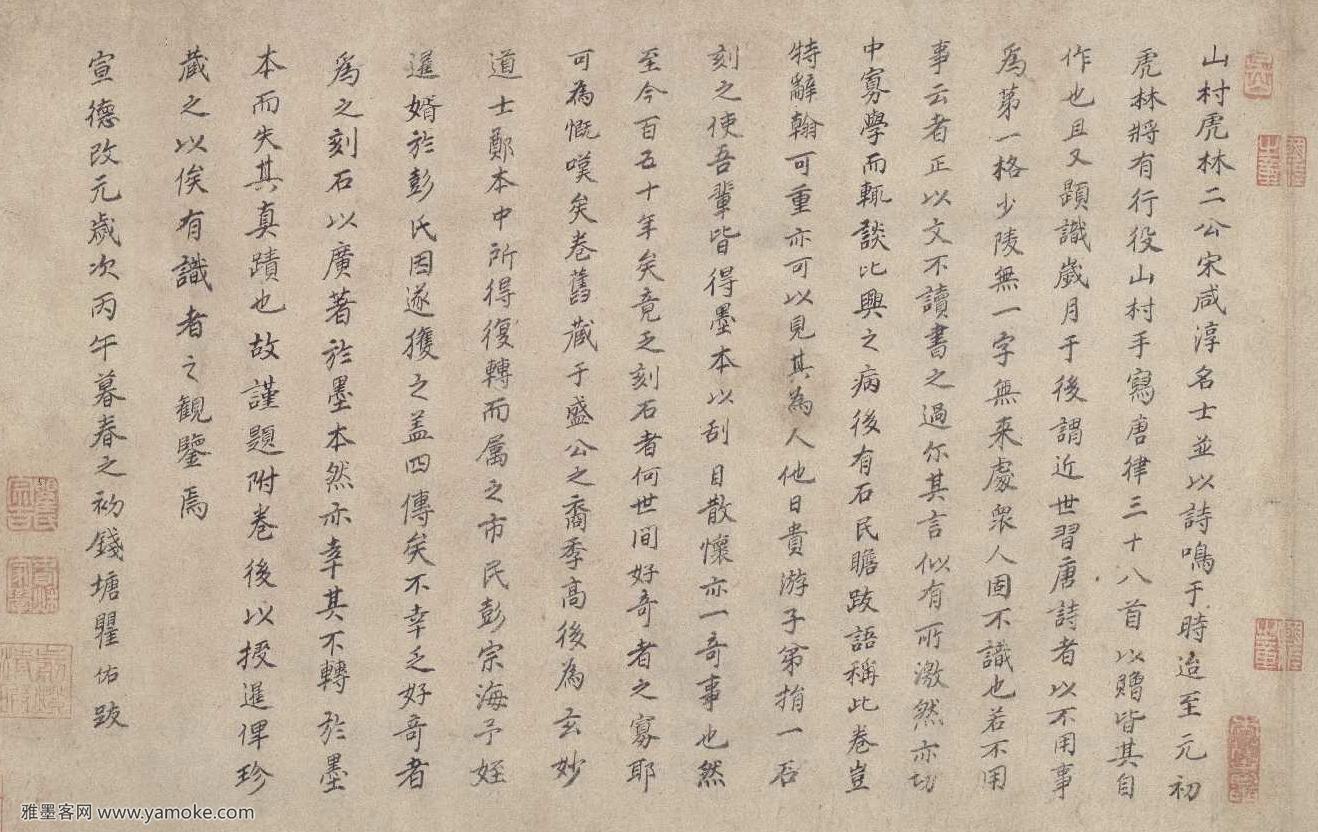 山村虎林二公宋咸淳名士並以詩鳴于時迨至元初
虎林將有行役山村手寫唐律三十八首以贈皆其自
作也且又題識歲月于後謂近世習唐詩者以不用事
爲第一格少陵無一字無来處衆人固不識也若不用
事云者正以文不讀書之過尔其言似有所激然亦切
中寡學而輒談比興之病後有石民瞻跋語稱此卷豈
特辭翰可重亦可以見其為人他日貴游子弟捐一石
刻之使吾輩皆得墨本以刮目散懷亦一奇事也然
至今百五十年矣竟乏刻石者何世間好奇者之寡耶
可為慨嘆矣卷舊藏于盛公之裔季高後為玄妙
道士鄭本中所得復轉而属之市民彭宗海予姪
暹婿於彭氏因遂獲之盖四傳矣不幸乏好奇者
爲之刻石以廣著於墨本然亦幸其不轉於墨
本而失其真蹟也故謹題附卷後以授暹俾珍
藏之以俟有識者之觀鑒焉
宣德改元歲次丙午暮春之初錢塘瞿佑跋
雅墨客网 www.yamoke.com